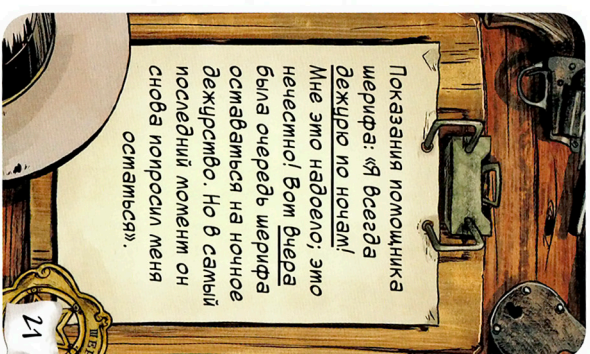 Показания помощника
шерифа: «Я всегда
дежурю по ночам!
Мне это надоело; это
нечестно! Вот вчера
была очередь шерифа
оставаться на ночное
дежурство. Но в самый
последний момент он
снова попросил меня
остаться».
21